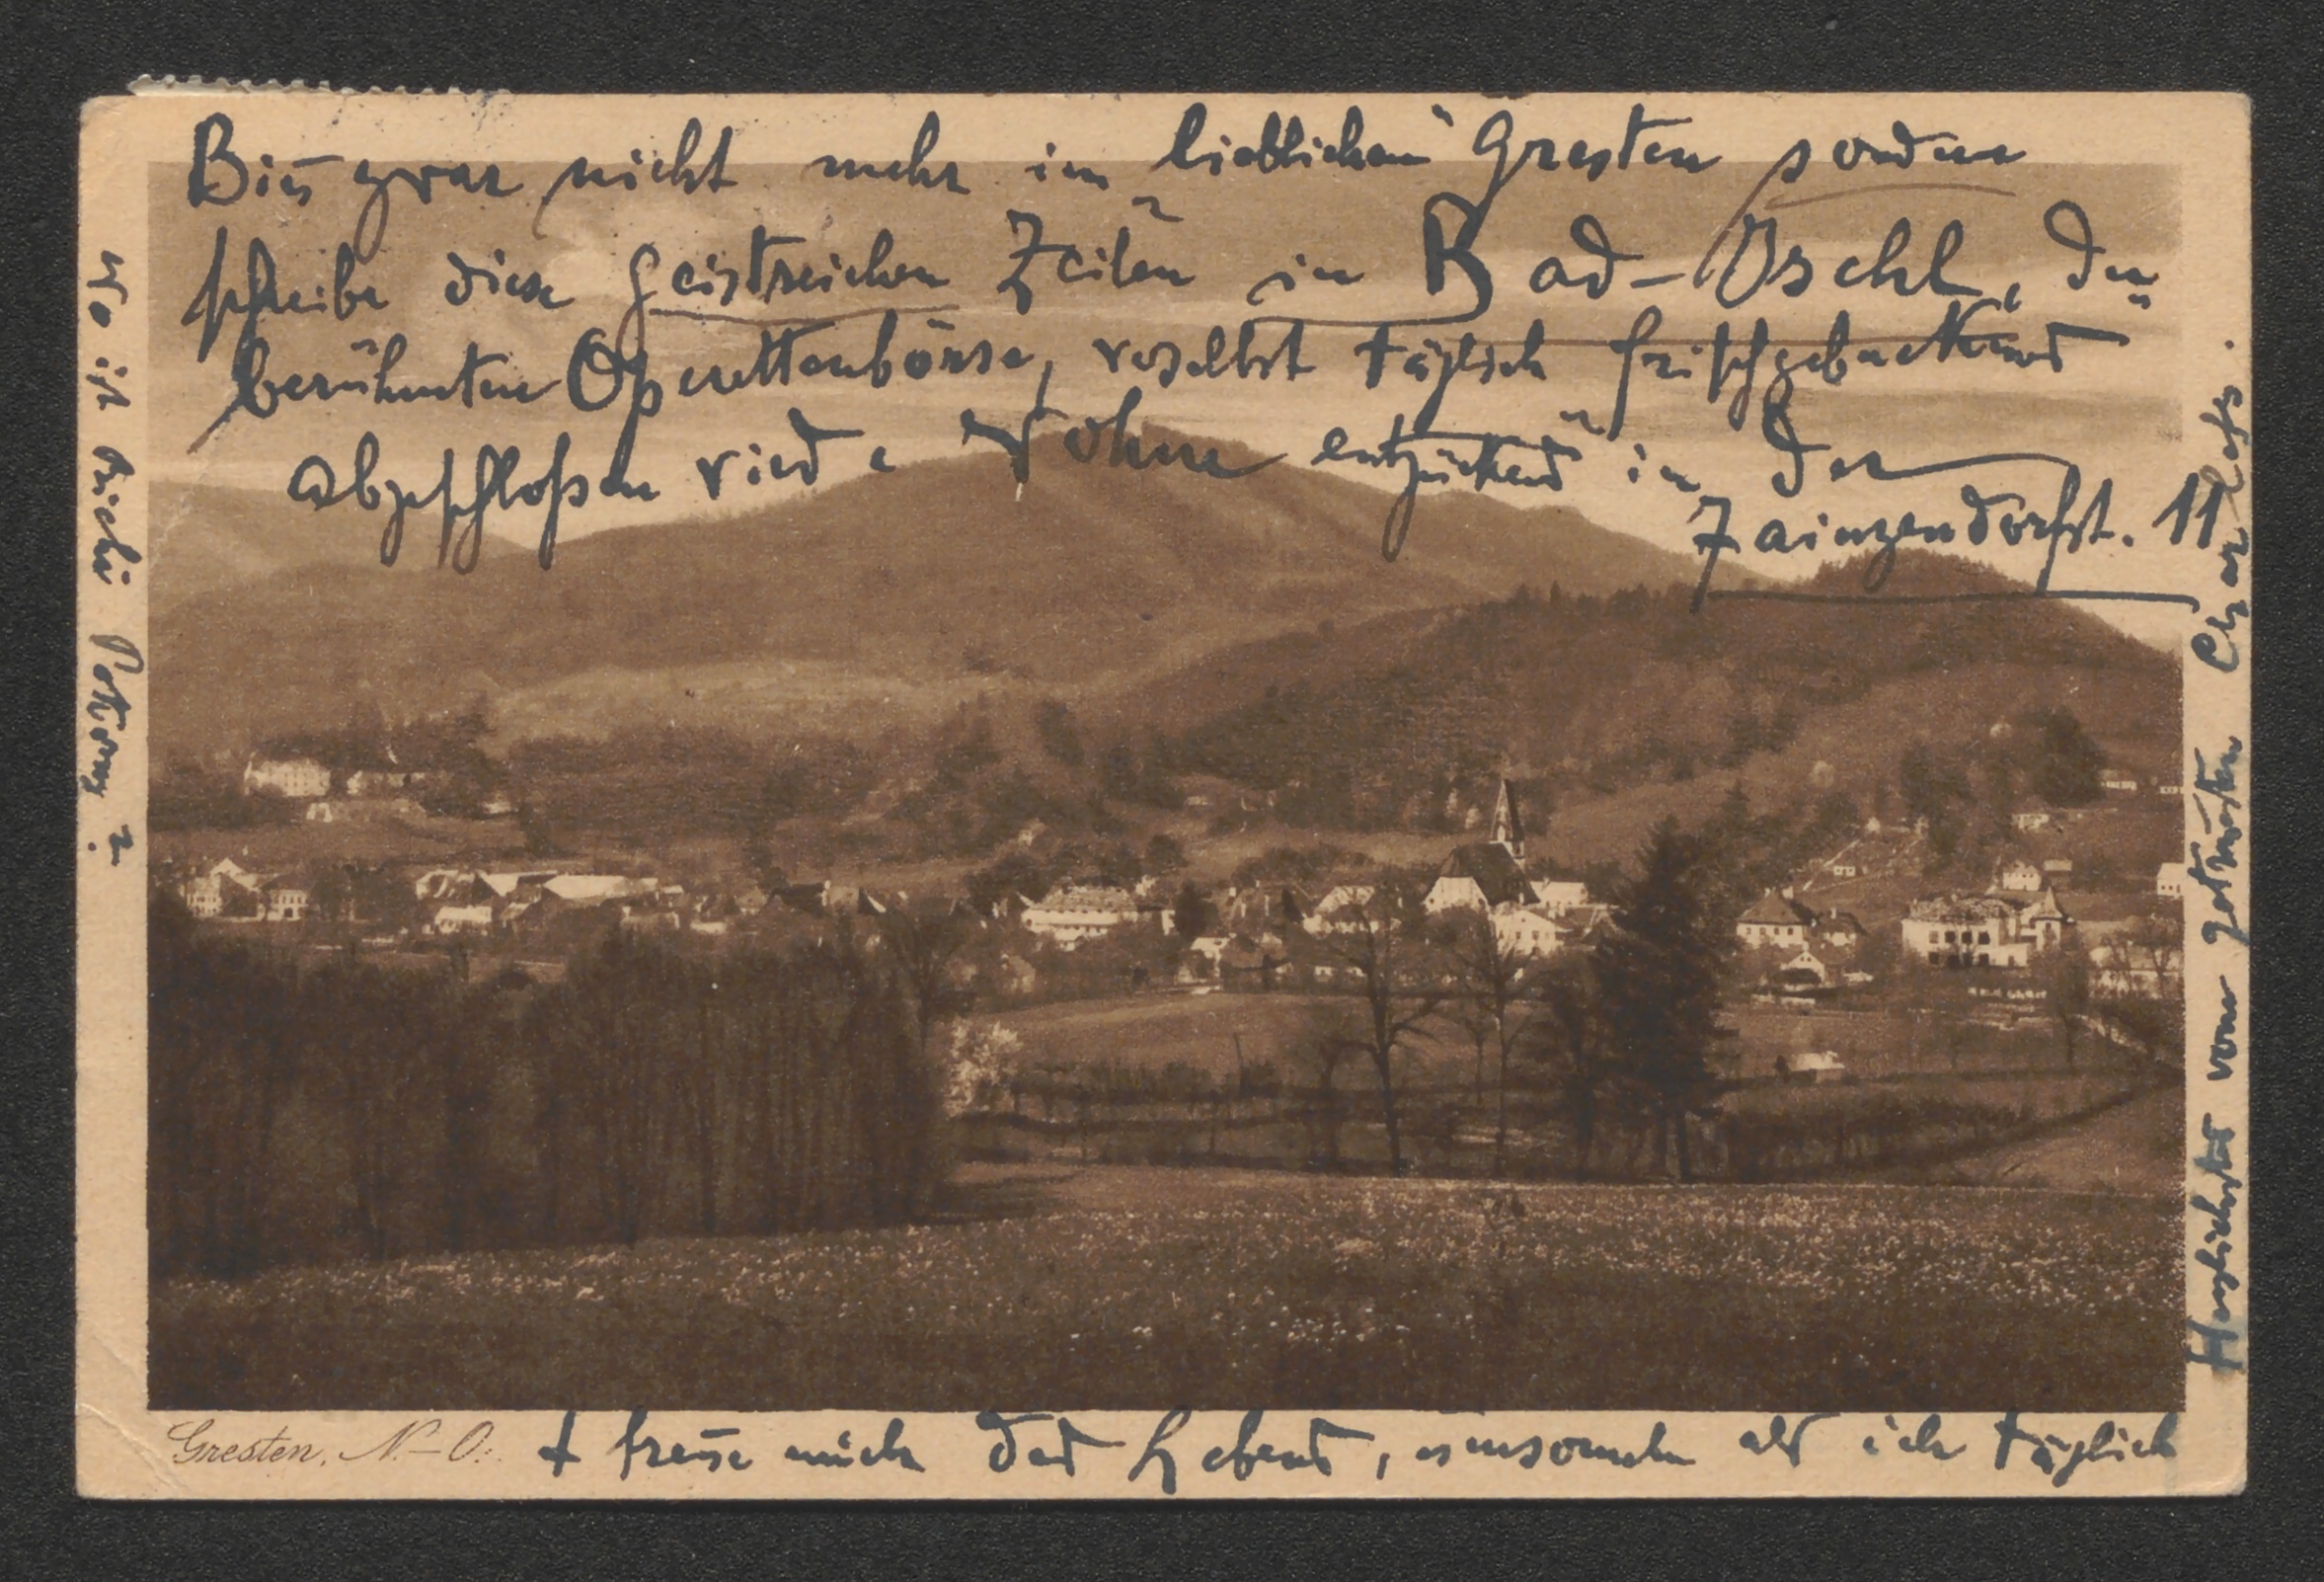 Bin zwar nicht mehr im "lieblichen" Gresten sondern
schreibe diese geistreichen Zeilen in Bad-Ischl, der
berühmten "Operettenbörse", woselbst täglich frischgebackenes
abgeschloßen wird. Wohne entzückend in der
Zainzendorfst. 11
+ freue mich des Lebens, umsomehr als ich täglich
Wo ist Michi Pokorny?
Herzlichst vom getreusten Charles.
Gresten, N.-Ö.